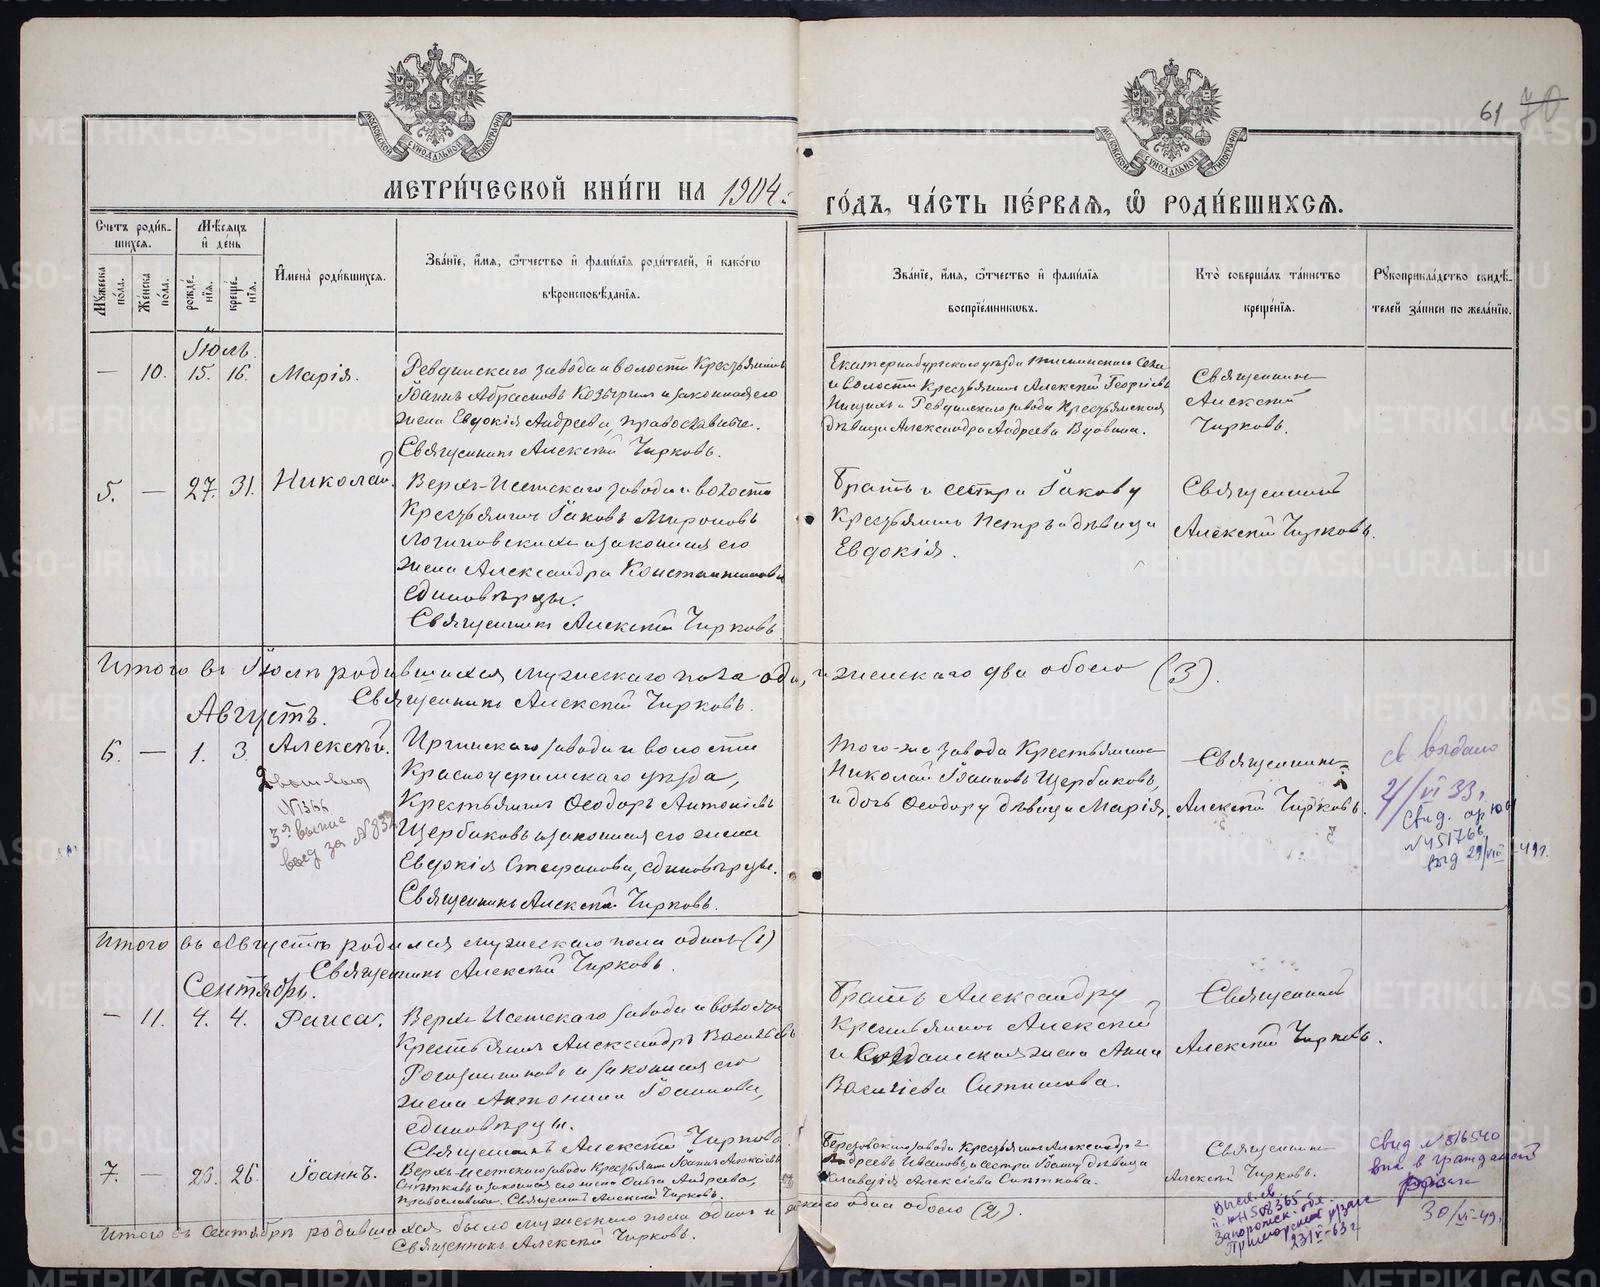 61 70
МОСКОВСКОЙ СУНОДАЛЬНОЙ ТИПОГРАФІИ
МОСКОВСКОЙ СУНОДАЛЬНОЙ ТИПОГРАФІИ
МЕТРИ́ЧЕСКОЙ КНИ́ГИ НА 1904
ГО́ДЪ, ЧА́СТЬ ПЕ́РВАЯ, Ѿ РОДИ́ВШИХСЯ.
Счетъ роди́в-
шихся.
Мѣ́сяцъ
и҆ де́нь
Мꙋ́жеска по́ла.
Же́нска по́ла.
рожде́-
нїѧ.
креще́-
нїѧ.
И҆мена̀ роди́вшихся.
Зва́нїе, и҆́мя, ѻ҆́тчество и҆ фами́лїѧ роди́телей, и҆ како́гѡ
вѣроисповѣ́данїѧ.
Зва́нїе, и҆́мя, ѻ҆́тчество и҆ фами́лїѧ
воспрїе́мникѡвъ.
Кто̀ соверша́лъ та́инство
креще́нїѧ.
Рꙋкоприкла́дство свидѣ́-
телей за́писи по жела́нїю.
Іюль.
— 10. 15. 16. Марія.
Ревдинскаго завода и волости Крестьянинъ
Іоаннъ Абрамовъ Козыринъ и законная его
жена Евдокія Андреева, православные.
Священникъ Алексѣй Чирковъ.
Екатеринбургскаго уѣзда села
и волости Крестьянинъ Алексѣй Георгіевъ
и Ревдинскаго завода Крестьянская
дѣвица Александра Андреева Вдовина.
Священникъ
Алексѣй
Чирковъ.
5. — 27. 31. Николай.
Верхъ-Исетскаго завода и волости
Крестьянинъ Іаковъ Мироновъ
Логиновскихъ и законная его
жена Александра Константинова
единовѣрцы.
Священникъ Алексѣй Чирковъ.
Братъ и сестра Іакову
Крестьянинъ Петръ и дѣвица
Евдокія.
Священникъ
Алексѣй Чирковъ.
Итого въ Іюлѣ родившихся мужескаго пола одн, и женскаго два обоего (3).
Священникъ Алексѣй Чирковъ.
Августъ.
6. — 1. 3. Алексѣй.
N1366
3-я выпис
выд за N832
Иргинскаго завода и волости
Красноуфимскаго уѣзда,
Крестьянинъ Ѳеодоръ Антоніевъ
Щербаковъ и законная его жена
Евдокія Стефанова, единовѣрцы.
Священникъ Алексѣй Чирковъ.
того-же завода Крестьянинъ
Николай Іоанновъ Щербаковъ,
и дочь Ѳеодору дѣвица Марія.
Священникъ
Алексѣй Чирковъ.
Св выдано
2/VI 33 г
Свид.
N451766
выд 29/VIII-49г.
Итого въ Августѣ родился мужескаго пола одинъ (1)
Священникъ Алексѣй Чирковъ.
Сентябрь.
— 11. 4. 4. Раиса.
Верхъ-Исетскаго завода и волости
Крестьянинъ Александръ Васильевъ
Рогозинниковъ и законная его
жена Антонина Іоаннова,
единовѣрцы.
Священникъ Алексѣй Чирковъ.
Братъ Александру
Крестьянинъ Алексѣй
и Солдатская жена Анна
Василіева Ситникова.
Священникъ
Алексѣй Чирковъ.
7. — 23. 26. Іоаннъ.
Верхъ-Исетскаго завода Крестьянинъ Іоаннъ Алексіевъ
и законная его жена Ольга Андреева,
православные. Священникъ Алексѣй Чирковъ.
Березовскаго завода Крестьянинъ Александръ
Андреевъ Ивановъ и сестра Іоанну дѣвица
Клавдія Алексіева
Священникъ
Алексѣй Чирковъ.
Свид N 516540
30/VI-49г.
58365
Запорожск. обл.
23/V-63 г.
Итого въ сентябрѣ родившихся было мужескаго пола одинъ и женскаго одна обоего (2).
Священникъ Алексѣй Чирковъ.
METRIKI.GASO-URAL.RU